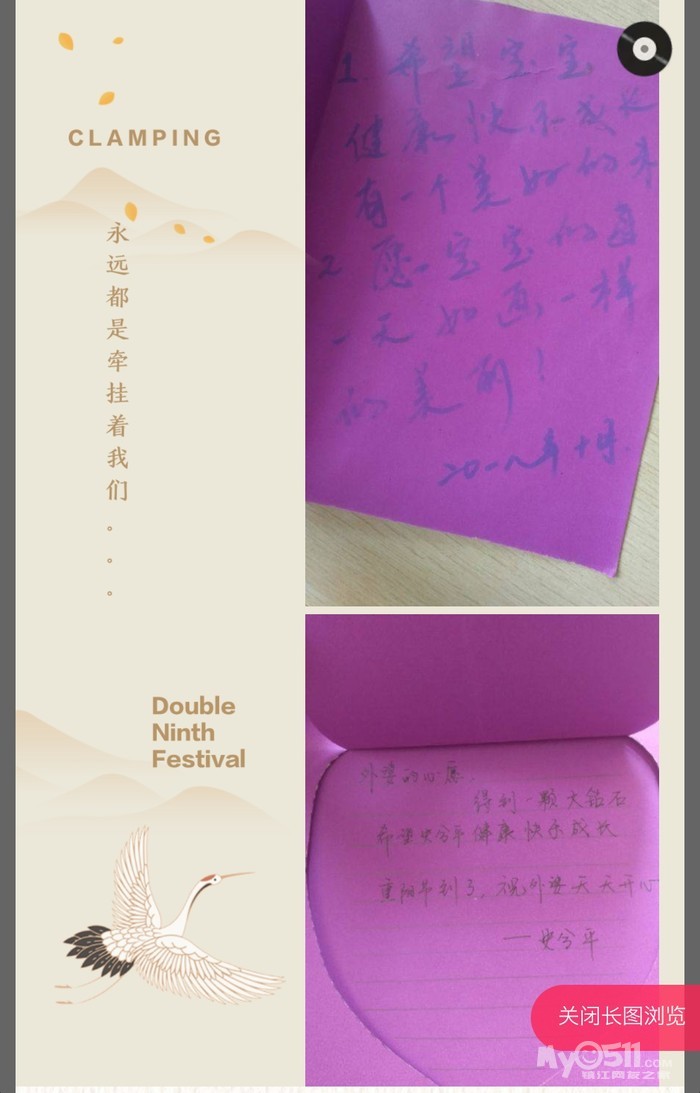 CLAMPING
永远都是牵挂着我们。。。
Double
Ninth
Festival
1. 希望宝宝
健康快乐成长
有一个美好的未
2. 愿宝宝的每
一天如画一样
的美丽！
二〇一八年十月
外婆的心愿，
得到一颗大钻石
希望史兮平健康快乐成长
重阳节到了，祝外婆天天开心
——史兮平
关闭长图浏览
My0511.com
镇江网友之家